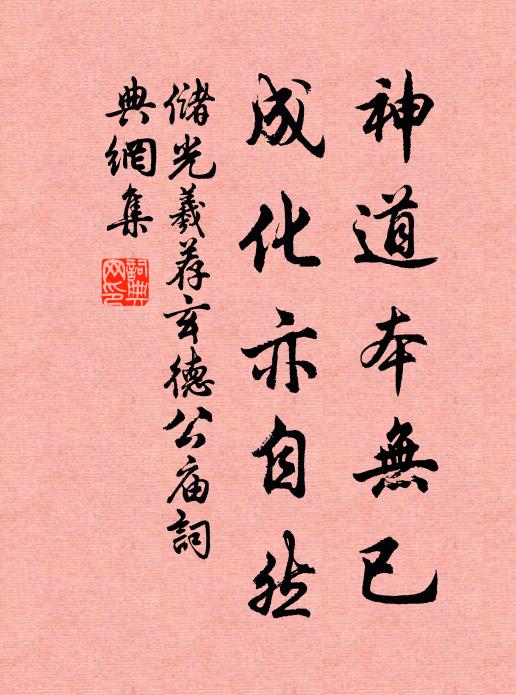 神道本無已
成化亦自然
儲光羲荐玄德公庙詞
典網集
詞典
网印